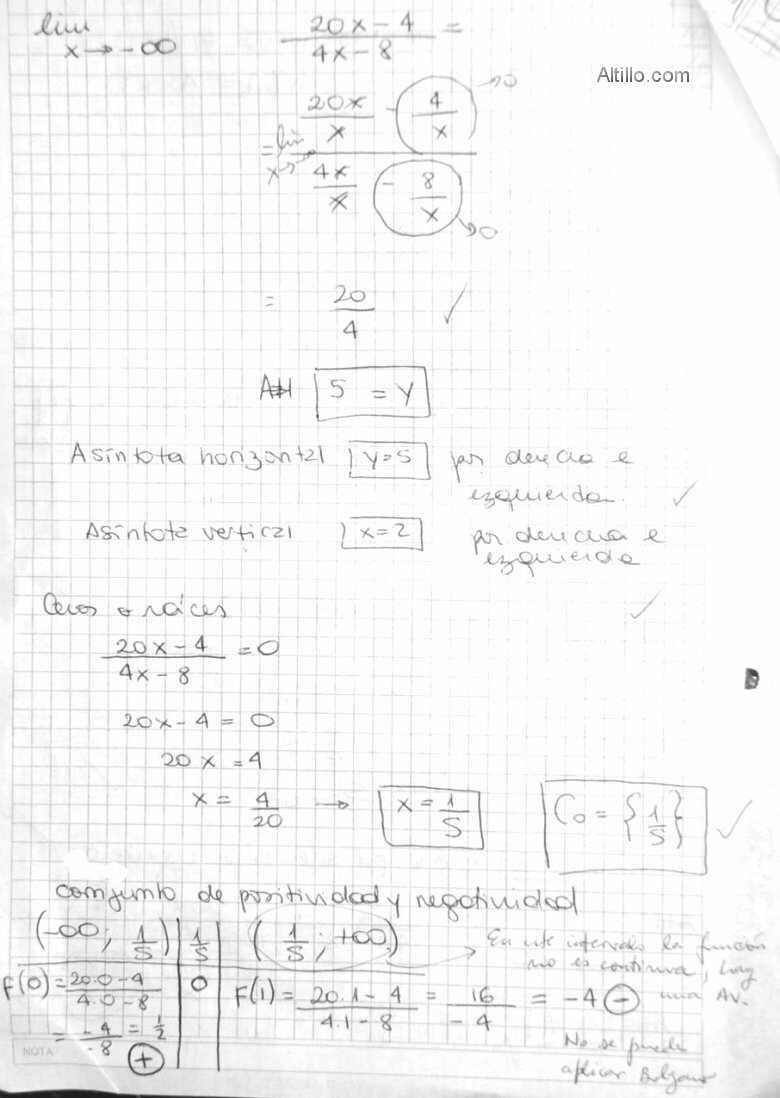 lim x→-∞ (20x - 4)/(4x - 8) =
Altillo.com
= lim x→ (20x/x - 4/x)/(4x/x - 8/x) →0 →0
= 20/4 ✓
AH 5 = y
Asíntota horizontal y=5 por derecha e
izquierda. ✓
Asíntota vertical x=2 por derecha e
izquierda
Ceros o raíces ✓
(20x - 4)/(4x - 8) = 0
20x - 4 = 0
20x = 4
x = 4/20 → x = 1/5 C₀ = {1/5} ✓
conjunto de positividad y negatividad
(-∞; 1/5) | 1/5 | (1/5; +∞)
En este intervalo la función
no es continua, hay
una AV.
F(0) = (20.0-4)/(4.0-8) | 0 | F(1) = (20.1-4)/(4.1-8) = 16/-4 = -4 ⊖
= -4/-8 = 1/2 ⊕
No se puede
aplicar Bolzano
NOTA